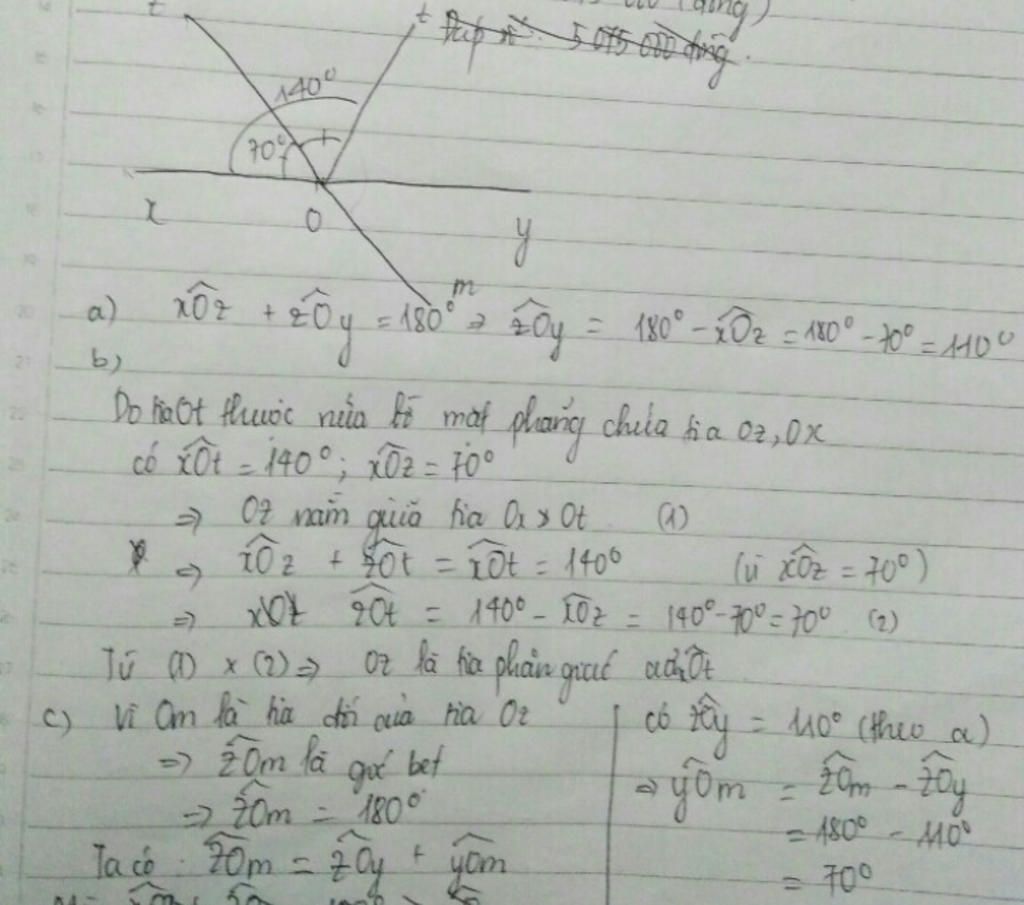 (đồng)
t t Đáp số: 5 075 000 đồng.
140°
70°
x O y
m
a) xÔz + zÔy = 180° => zÔy = 180° - xÔz = 180° - 70° = 110°
b)
Do tia Ot thuộc nửa bờ mặt phẳng chứa tia Oz, Ox
có xÔt = 140°; xÔz = 70°
=> Oz nằm giữa tia Ox, Ot (1)
=> xÔz + zÔt = xÔt = 140° (vì xÔz = 70°)
=> zÔt = 140° - xÔz = 140° - 70° = 70° (2)
Từ (1) x (2) => Oz là tia phân giác của xÔt
c) Vì Om là tia đối của tia Oz
=> zÔm là góc bẹt
=> zÔm = 180°
Ta có: zÔm = zÔy + yÔm
có zÔy = 110° (theo a)
=> yÔm = zÔm - zÔy
= 180° - 110°
= 70°